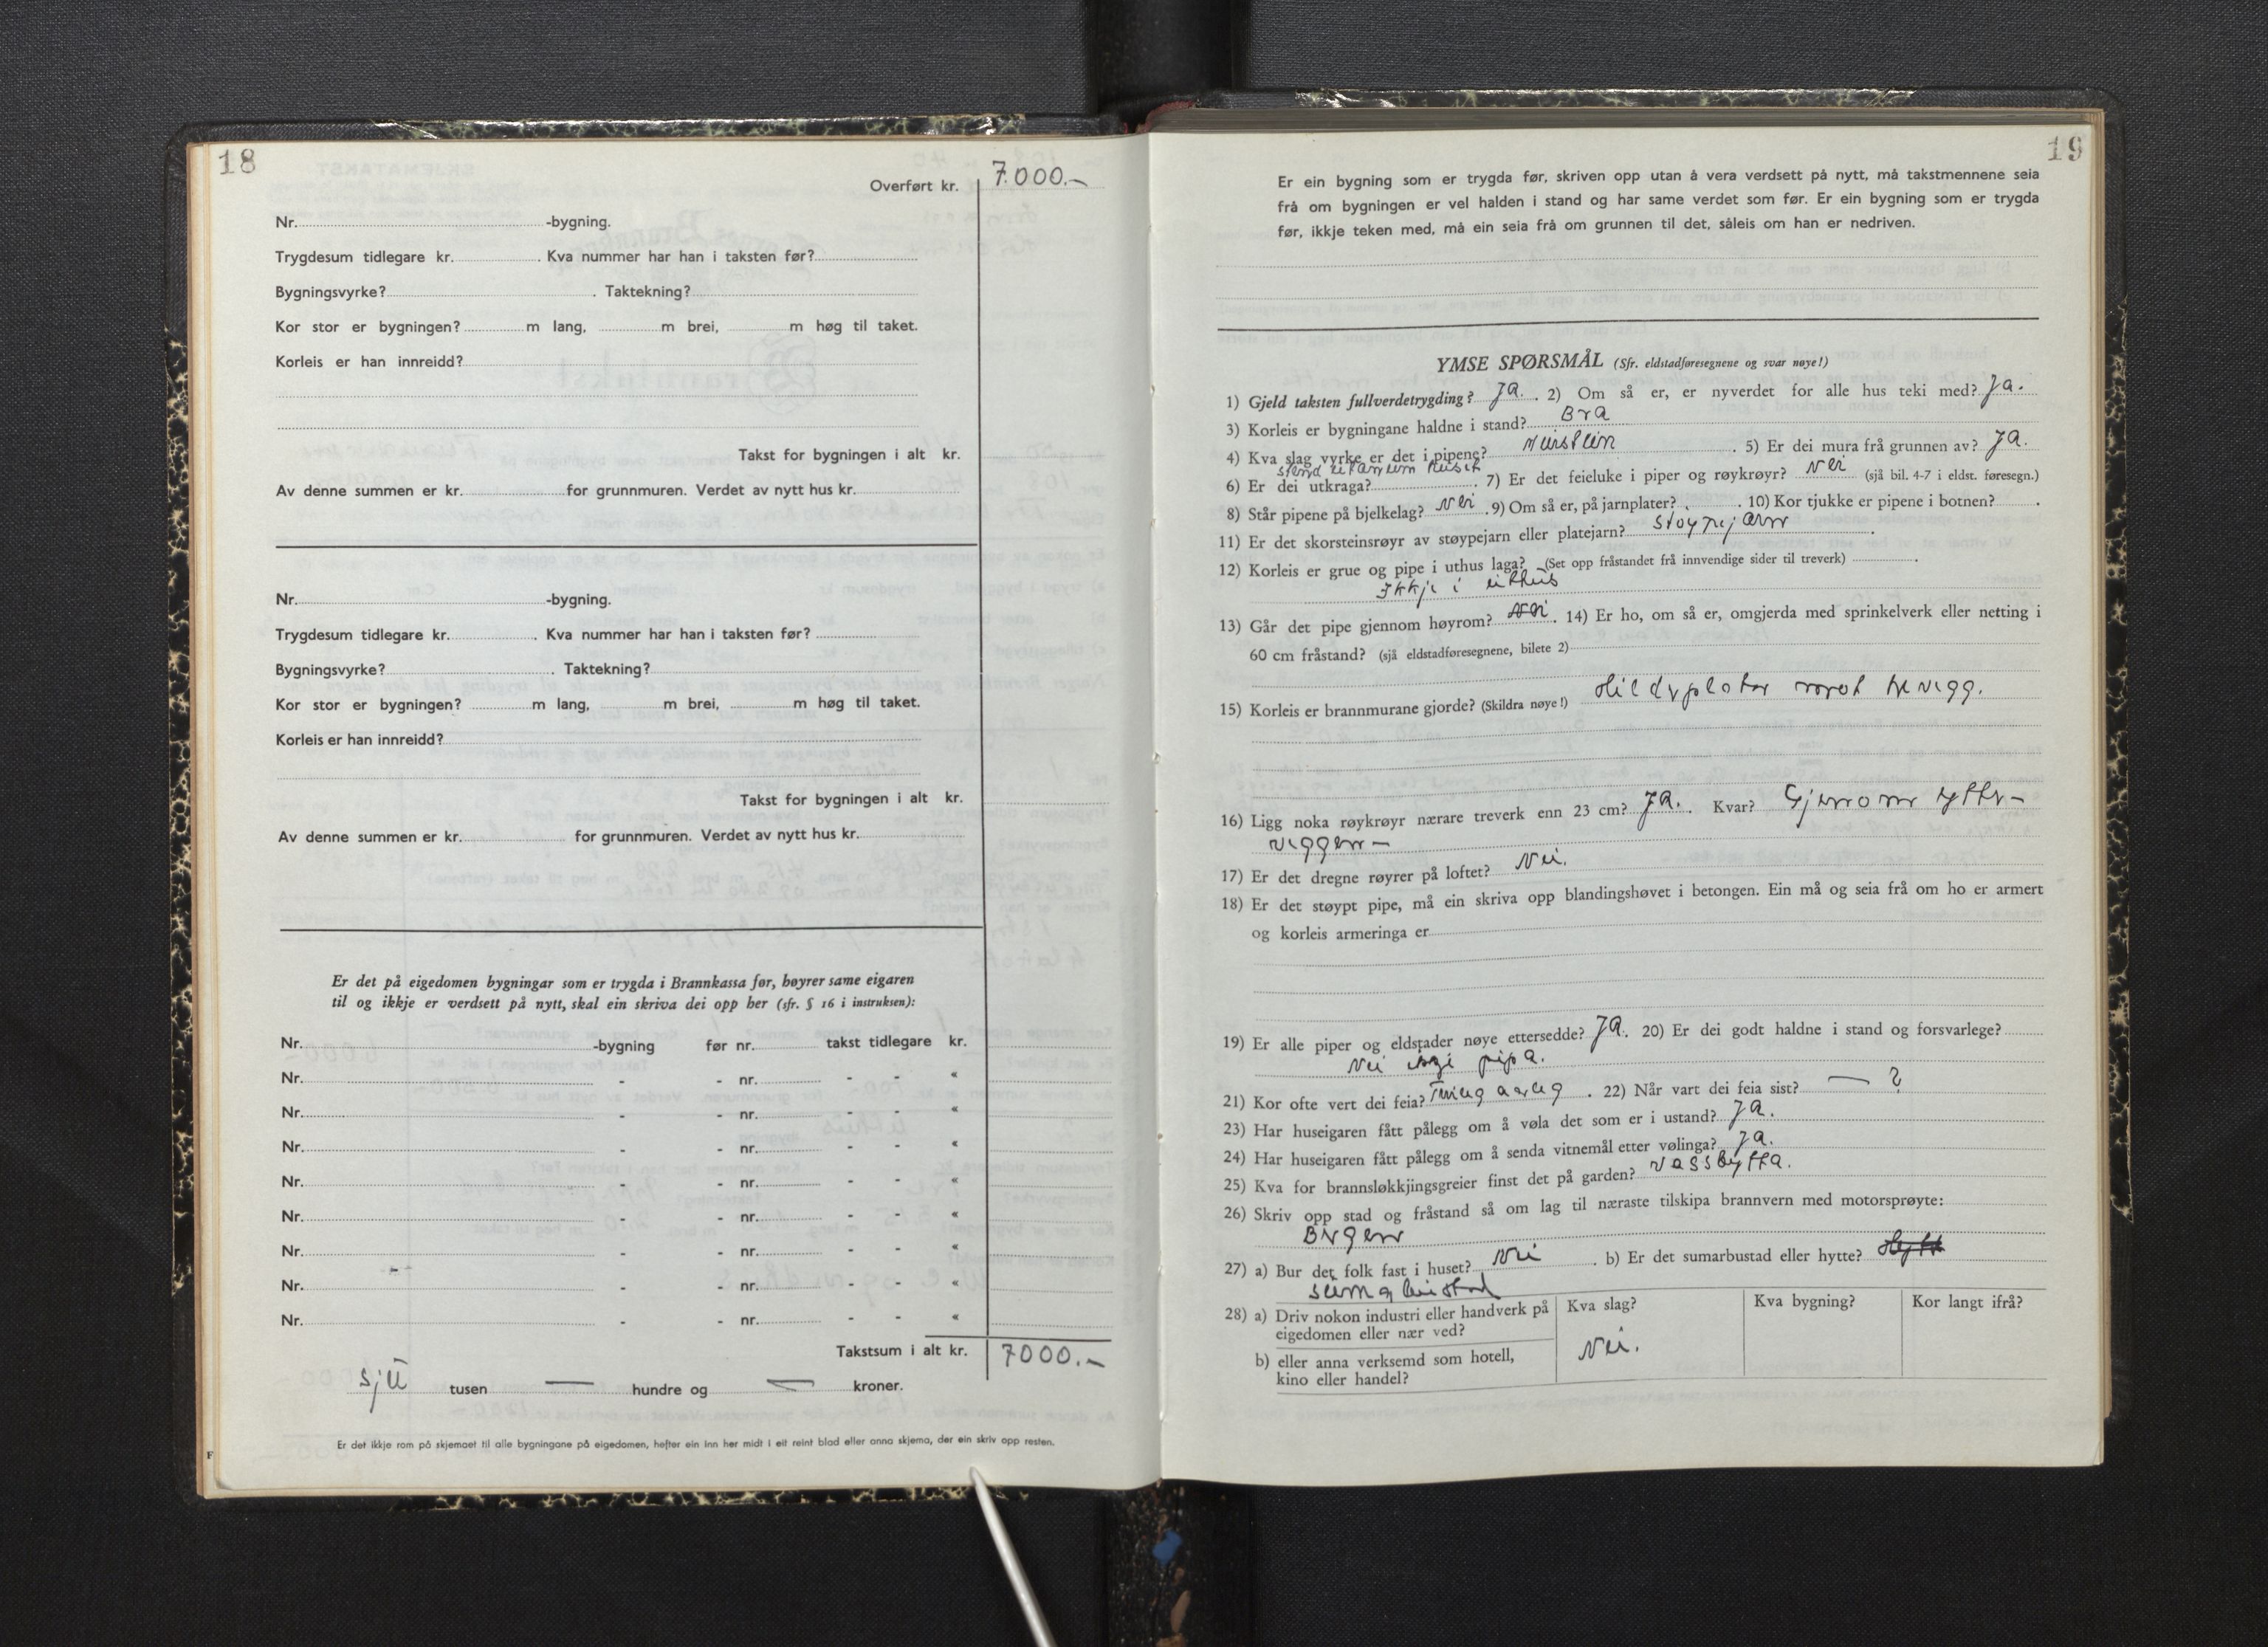 18
Overført kr. 7.000.-
Nr. -bygning.
Trygdesum tidlegare kr. . Kva nummer har han i taksten før?
Bygningsvyrke? . Taktekning?
Kor stor er bygningen? m lang, m brei, m høg til taket.
Korleis er han innreidd?
Takst for bygningen i alt kr.
Av denne summen er kr. for grunnmuren. Verdet av nytt hus kr.
Nr. -bygning.
Trygdesum tidlegare kr. . Kva nummer har han i taksten før?
Bygningsvyrke? . Taktekning?
Kor stor er bygningen? m lang, m brei, m høg til taket.
Korleis er han innreidd?
Takst for bygningen i alt kr.
Av denne summen er kr. for grunnmuren. Verdet av nytt hus kr.
Er det på eigedomen bygningar som er trygda i Brannkassa før, høyrer same eigaren
til og ikkje er verdsett på nytt, skal ein skriva dei opp her (sfr. § 16 i instruksen):
Nr. -bygning før nr. takst tidlegare kr.
Nr. - - nr. - - «
Nr. - - nr. - - «
Nr. - - nr. - - «
Nr. - - nr. - - «
Nr. - - nr. - - «
Nr. - - nr. - - «
Nr. - - nr. - - «
Nr. - - nr. - - «
Takstsum i alt kr. 7000.-
sju tusen — hundre og — kroner.
Er det ikkje rom på skjemaet til alle bygningane på eigedomen, hefter ein inn her midt i eit reint blad eller anna skjema, der ein skriv opp resten.
F
19
Er ein bygning som er trygda før, skriven opp utan å vera verdsett på nytt, må takstmennene seia
frå om bygningen er vel halden i stand og har same verdet som før. Er ein bygning som er trygda
før, ikkje teken med, må ein seia frå om grunnen til det, såleis om han er nedriven.
YMSE SPØRSMÅL (Sfr. eldstadføresegnene og svar nøye!)
1) Gjeld taksten fullverdetrygding? Ja. . 2) Om så er, er nyverdet for alle hus teki med? Ja.
3) Korleis er bygningane haldne i stand? Bra
4) Kva slag vyrke er det i pipene? Murstein . 5) Er dei mura frå grunnen av? Ja.
stend utanum huset
6) Er dei utkraga? . 7) Er det feieluke i piper og røykrøyr? Nei (sjå bil. 4-7 i eldst. føresegn.)
8) Står pipene på bjelkelag? Nei . 9) Om så er, på jarnplater? . 10) Kor tjukke er pipene i botnen? .
11) Er det skorsteinsrøyr av støypejarn eller platejarn? støypejarn .
12) Korleis er grue og pipe i uthus laga? (Set opp fråstandet frå innvendige sider til treverk) .
Ikkje i uthus
13) Går det pipe gjennom høyrom? Nei . 14) Er ho, om så er, omgjerda med sprinkelverk eller netting i
60 cm fråstand? (sjå eldstadføresegnene, bilete 2)
15) Korleis er brannmurane gjorde? (Skildra nøye!) Hildvplater mot trevegg.
16) Ligg noka røykrøyr nærare treverk enn 23 cm? Ja. . Kvar? Gjenom ytter-
veggen -
17) Er det dregne røyrer på loftet? Nei.
18) Er det støypt pipe, må ein skriva opp blandingshøvet i betongen. Ein må og seia frå om ho er armert
og korleis armeringa er
19) Er alle piper og eldstader nøye ettersedde? Ja. 20) Er dei godt haldne i stand og forsvarlege?
Nei pipa.
21) Kor ofte vert dei feia? aarleg . 22) Når vart dei feia sist? — ?
23) Har huseigaren fått pålegg om å vøla det som er i ustand? Ja.
24) Har huseigaren fått pålegg om å senda vitnemål etter vølinga? Ja.
25) Kva for brannsløkkjingsgreier finst det på garden? Vassbytta.
26) Skriv opp stad og fråstand så om lag til næraste tilskipa brannvern med motorsprøyte:
Bergen
27) a) Bur det folk fast i huset? Nei . b) Er det sumarbustad eller hytte? Hytte
sumarbustad
28) a) Driv nokon industri eller handverk på eigedomen eller nær ved?
Kva slag? Kva bygning? Kor langt ifrå?
Nei.
b) eller anna verksemd som hotell,
kino eller handel?